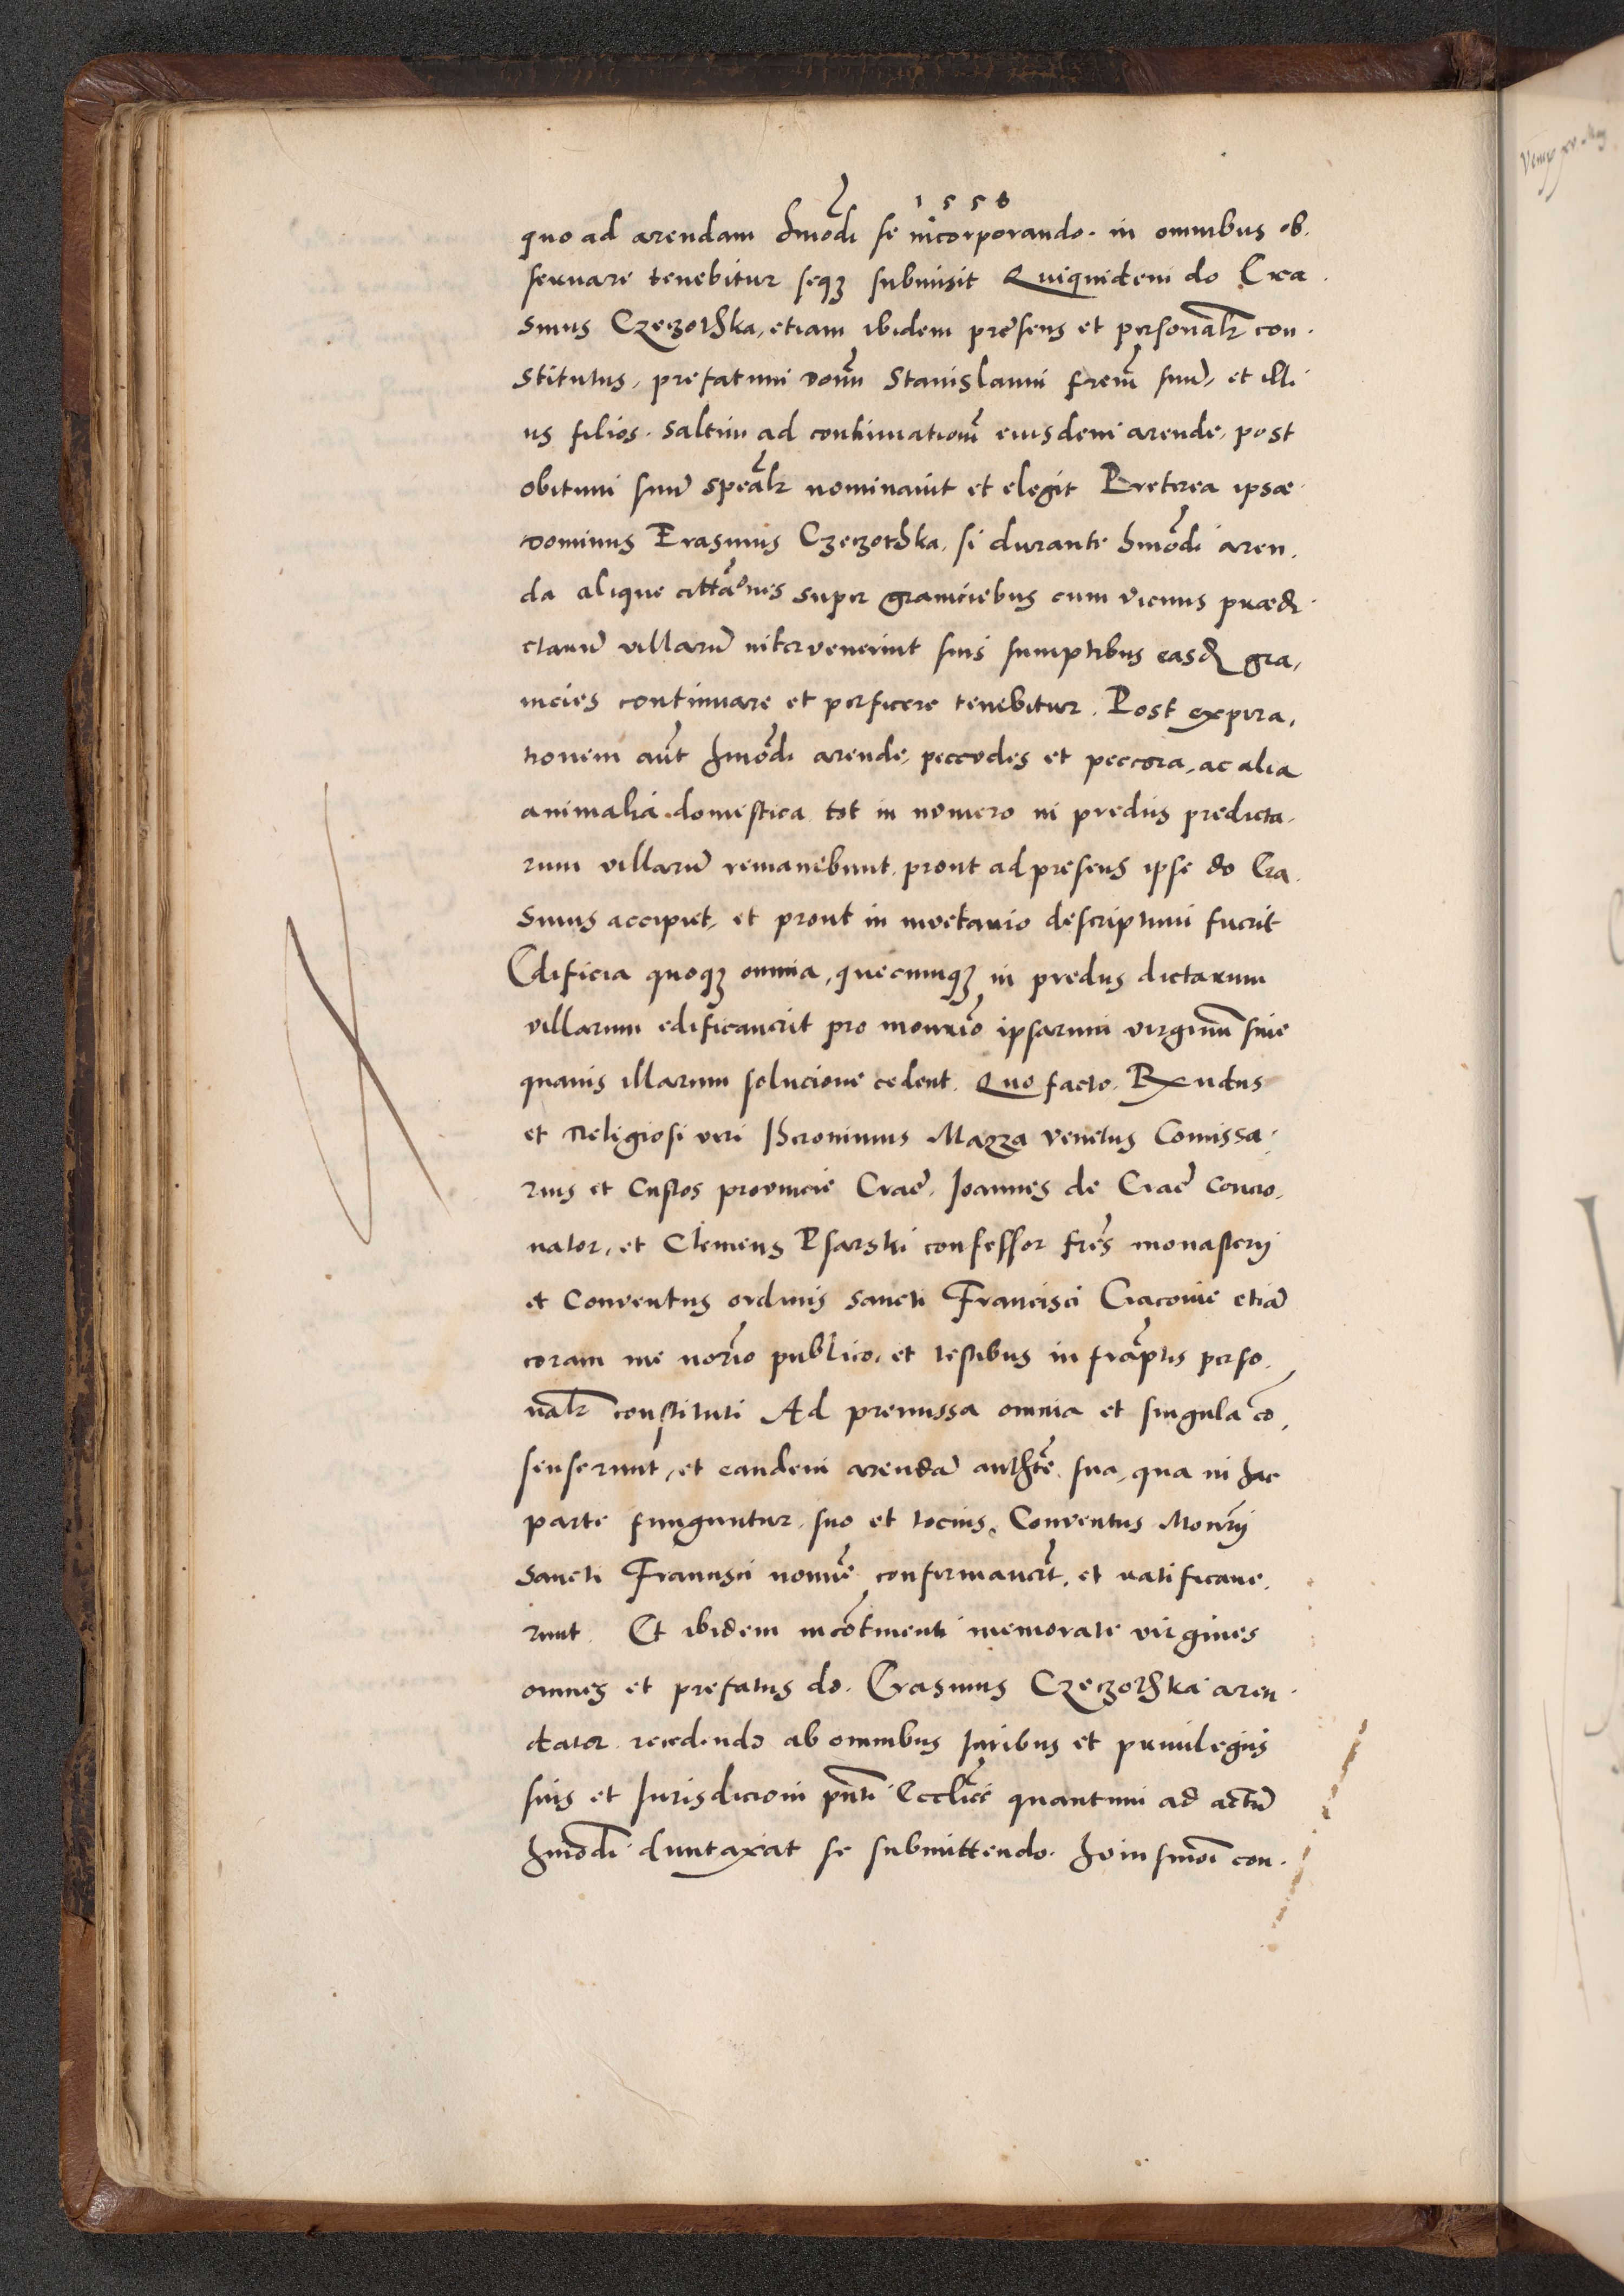 1556
quo ad arendam hmođi se incorporando. in omnibus ob.
seruare tenebitur seqz submisit Quiquidem do Era
smus Czeczothka, etiam ibidem presens et personalr con.
stitutus, prefatum domu Stanislaum frem suu, et illi
us filios. saltim ad continuationē eiusdem arende, post
obitum suu spealr nominauit et elegit Preterea ipsæ
dominus Erasmus Czeczothka, si durante hmodi aren.
da alique cittaones super graniciebus cum vicinis prædi
ctarū villarū intervenerint suis sumptibus easd gra,
nicies continuare et perficere tenebitur. Post expira,
tionem aut hmodi arende, peccodes et peccora, ac alia
animalia domestica tot in nomero in predijs predicta.
rum villarū remanebunt, prout ad presens ipse do Era.
smus accipiet, et prout in inventario descriptum fuerit
Edificia quoqz omnia, quecumqz in predijs dictarum
villarum edificauerit pro monrio ipsarum virginum sine
quauis illarum solucione cedent. Quo facto. Rxndus
et Religiosi viri Hieronimus Mazza venetus Comissa.
rius et Custos provincie Crae. Joannes de Crae Concio.
nator, et Clemens Psarski confessor fres monasterij
et Conventus ordinis sancti Francisci Cracovie etiā
coram me norio publico, et testibus infraptis perso.
nalr constituti Ad premissa omnia et singula cō,
senserunt, et eandem arendā authte sua, qua in hac
parte funguntur, suo et tocius Conventus Monrij
sancti Francisci nomine confirmauert, et ratificaue.
runt. Et ibidem incōtinenti memorate virgines
omnes et prefatus do. Erasmus Czeczothka aren
dator recedendo ab omnibus Iuribus et priuilegijs
suis et Iurisdicioni pnti Ecclice quantum ad actū
hmodi duntaxat se submittendo. hoïusmoi con.